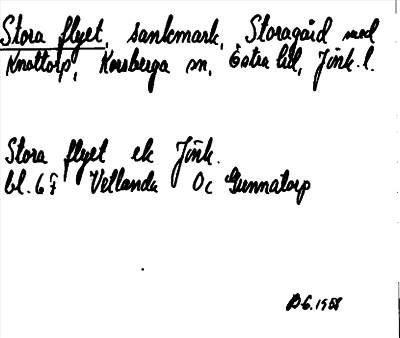 Stora flyet, sankmark, Storagård med
Knattorp, Korsberga sn, Östra hd, Jönk. l.
Stora flyet ek Jönk.
bl. 6 f Vetlanda Oc Gunnatorp
BG. 1958